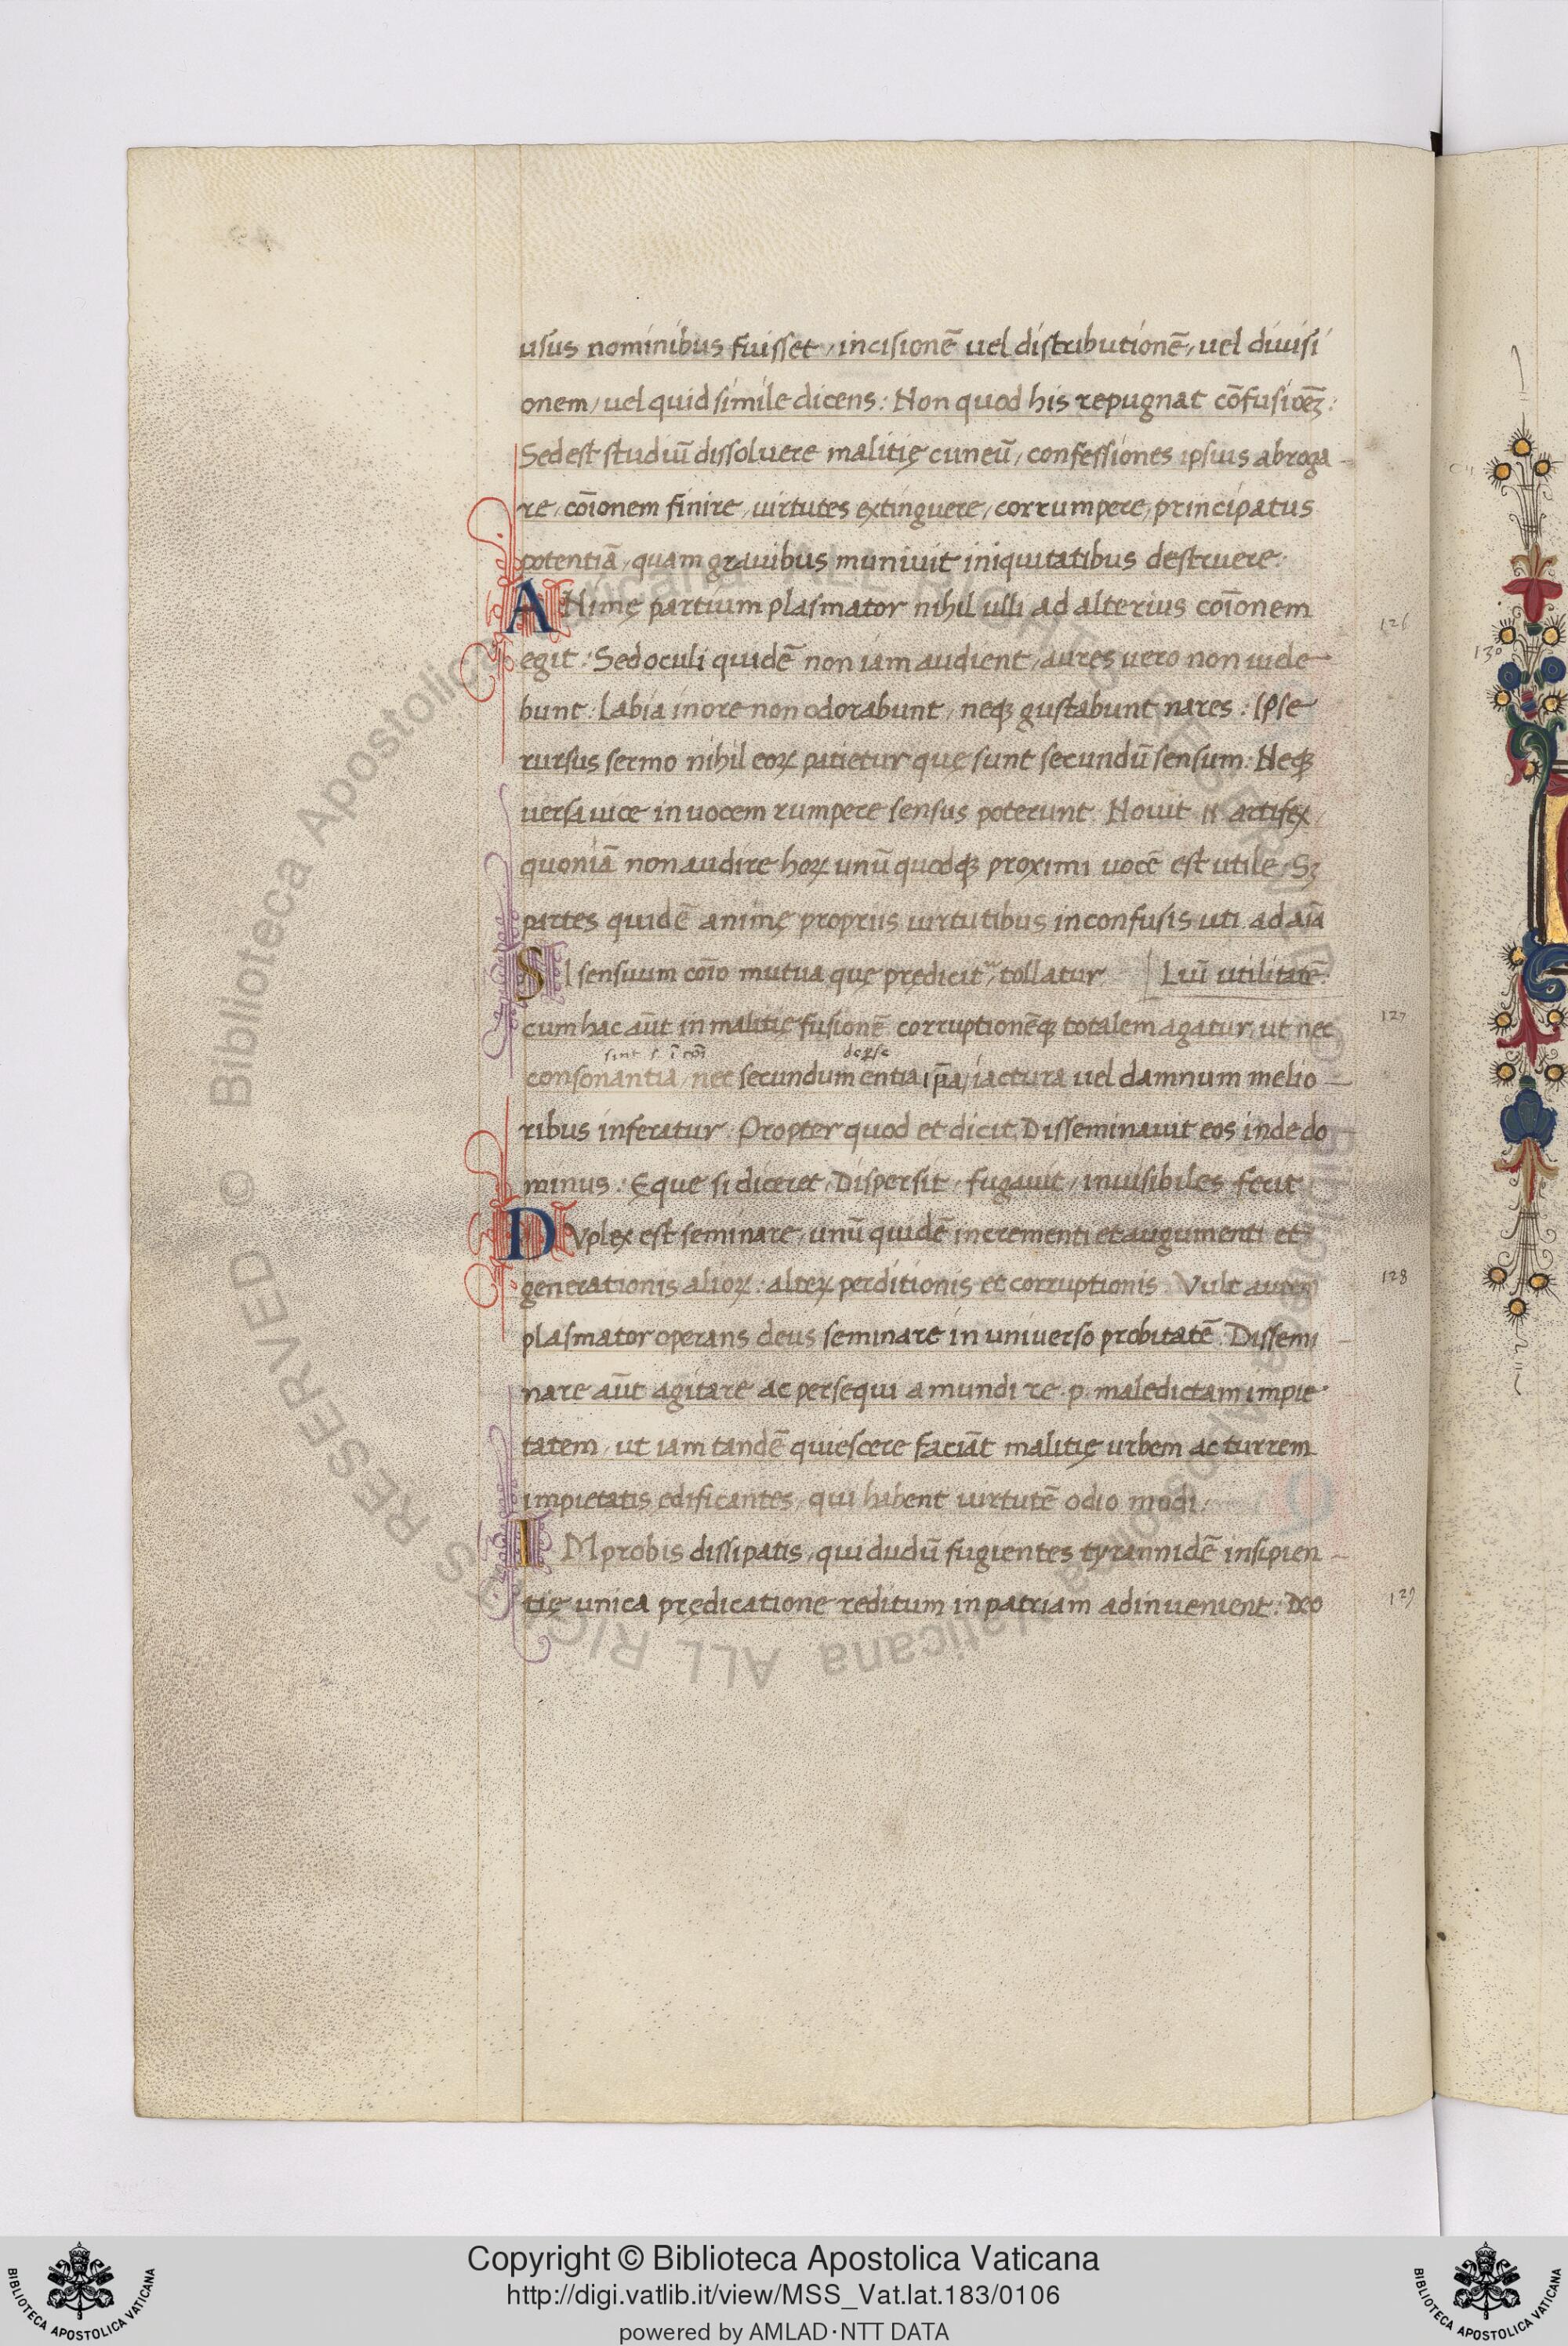 usus nominibus fuisset, incisionē uel distributionē, uel diuisi
onem, uel quid simile dicens: Non quod his repugnat cōfusiōeꝫ:
Sed est studiū dissoluere malitię cuneū, confessiones ipsius abroga-
re, cōionem finire, uirtutes extinguere, corrumpere, principatus
potentiā, quam grauibus muniuit iniquitatibus destruere.
ANimę partium plasmator nihil ulli ad alterius cōionem
126
egit: Sed oculi quidē non iam audient, aures uero non uide-
130
bunt: Labia in ore non odorabunt, neqꝫ gustabunt nares: Ipse
rursus sermo nihil eoꝝ patietur que sunt secundū sensum: Neqꝫ
uersa uice in uocem rumpere sensus poterunt. Nouit n̄ artifex,
quoniā non audire hoꝝ unū quodqꝫ proximi uocē est utile, Sꝫ
partes quidē animę propriis uirtutibus inconfusis uti ad aīa
SI sensuum cōio mutua quę predicit᷑, tollatur [Luū utilitatē.
cum hac aūt in malitię fusionē corruptionēqꝫ totalem agatur, ut nec
127
consonantia, nec secundum entia ip̄a, iactura uel damnum melio-
ribus inferatur. Propter quod et dicit, Disseminauit eos inde do
minus: Eque si diceret, Dispersit, fugauit, inuisibiles fecit
DVplex est seminare, unū quidē incrementi et augumenti et
generationis alioꝝ: alteꝝ perditionis et corruptionis. Vult autem
128
plasmator operans deus seminare in uniuerso probitatē: Dissemi-
nare aūt agitare ac persequi a mundi re.p. maledictam impie
tatem, ut iam tandē quiescere faciāt malitię urbem ac turrem
impietatis edificantes, qui habent uirtutē odio modi.
IMprobis dissipatis, qui dudū fugientes tyrannidē insipien-
tię unica prędicatione reditum in patriam adinuenient: Deo
129
Copyright © Biblioteca Apostolica Vaticana
http://digi.vatlib.it/view/MSS_Vat.lat.183/0106
powered by AMLAD·NTT DATA
BIBLIOTECA APOSTOLICA VATICANA
BIBLIOTECA APOSTOLICA VATICANA